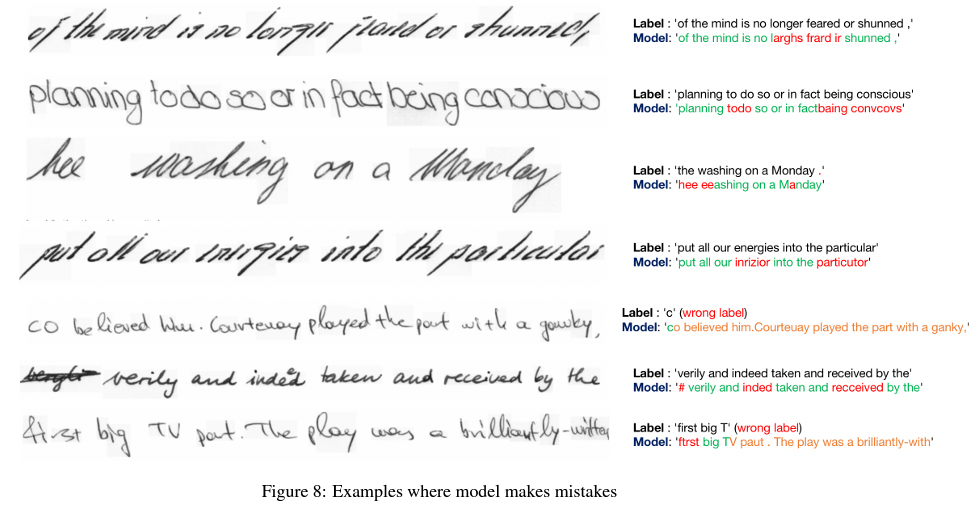 of the mind is no longer feared or shunned,
Label : 'of the mind is no longer feared or shunned ,'
Model: 'of the mind is no larghs frard ir shunned ,'
planning to do so or in fact being conscious
Label : 'planning to do so or in fact being conscious'
Model: 'planning todo so or in factbaing convcovs'
hee washing on a Monday
Label : 'the washing on a Monday .'
Model: 'hee eeashing on a Manday'
put all our energies into the particular
Label : 'put all our energies into the particular'
Model: 'put all our inrizior into the particutor'
co believed him. Courtenay played the part with a gawky,
Label : 'c' (wrong label)
Model: 'co believed him.Courteuay played the part with a ganky,'
verily and indeed taken and received by the
Label : 'verily and indeed taken and received by the'
Model: '# verily and inded taken and recceived by the'
first big TV part. The play was a brilliantly-written
Label : 'first big T' (wrong label)
Model: 'ftrst big TV paut . The play was a brilliantly-with'
Figure 8: Examples where model makes mistakes